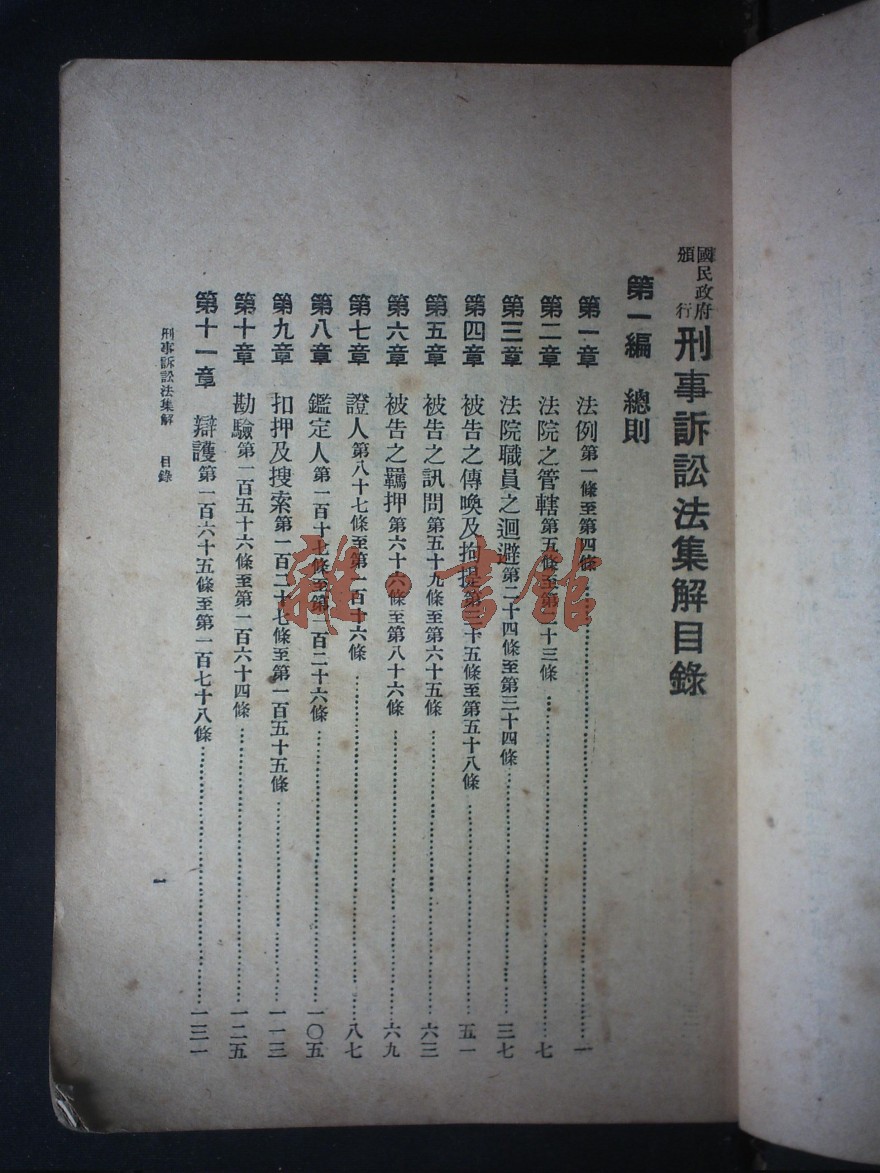 國民政府頒行 刑事訴訟法集解目錄
第一編 總則
第一章 法例第一條至第四條……一
第二章 法院之管轄第五條至第二十三條……七
第三章 法院職員之迴避第二十四條至第三十四條……三七
第四章 被告之傳喚及拘提第三十五條至第五十八條……五一
第五章 被告之訊問第五十九條至第六十五條……六三
第六章 被告之羈押第六十六條至第八十六條……六九
第七章 證人第八十七條至第一百十六條……八七
第八章 鑑定人第一百十七條至第一百二十六條……一〇五
第九章 扣押及搜索第一百二十七條至第一百五十五條……一一三
第十章 勘驗第一百五十六條至第一百六十四條……一二五
第十一章 辯護第一百六十五條至第一百七十八條……一三一
刑事訴訟法集解 目錄
一
雜·書館